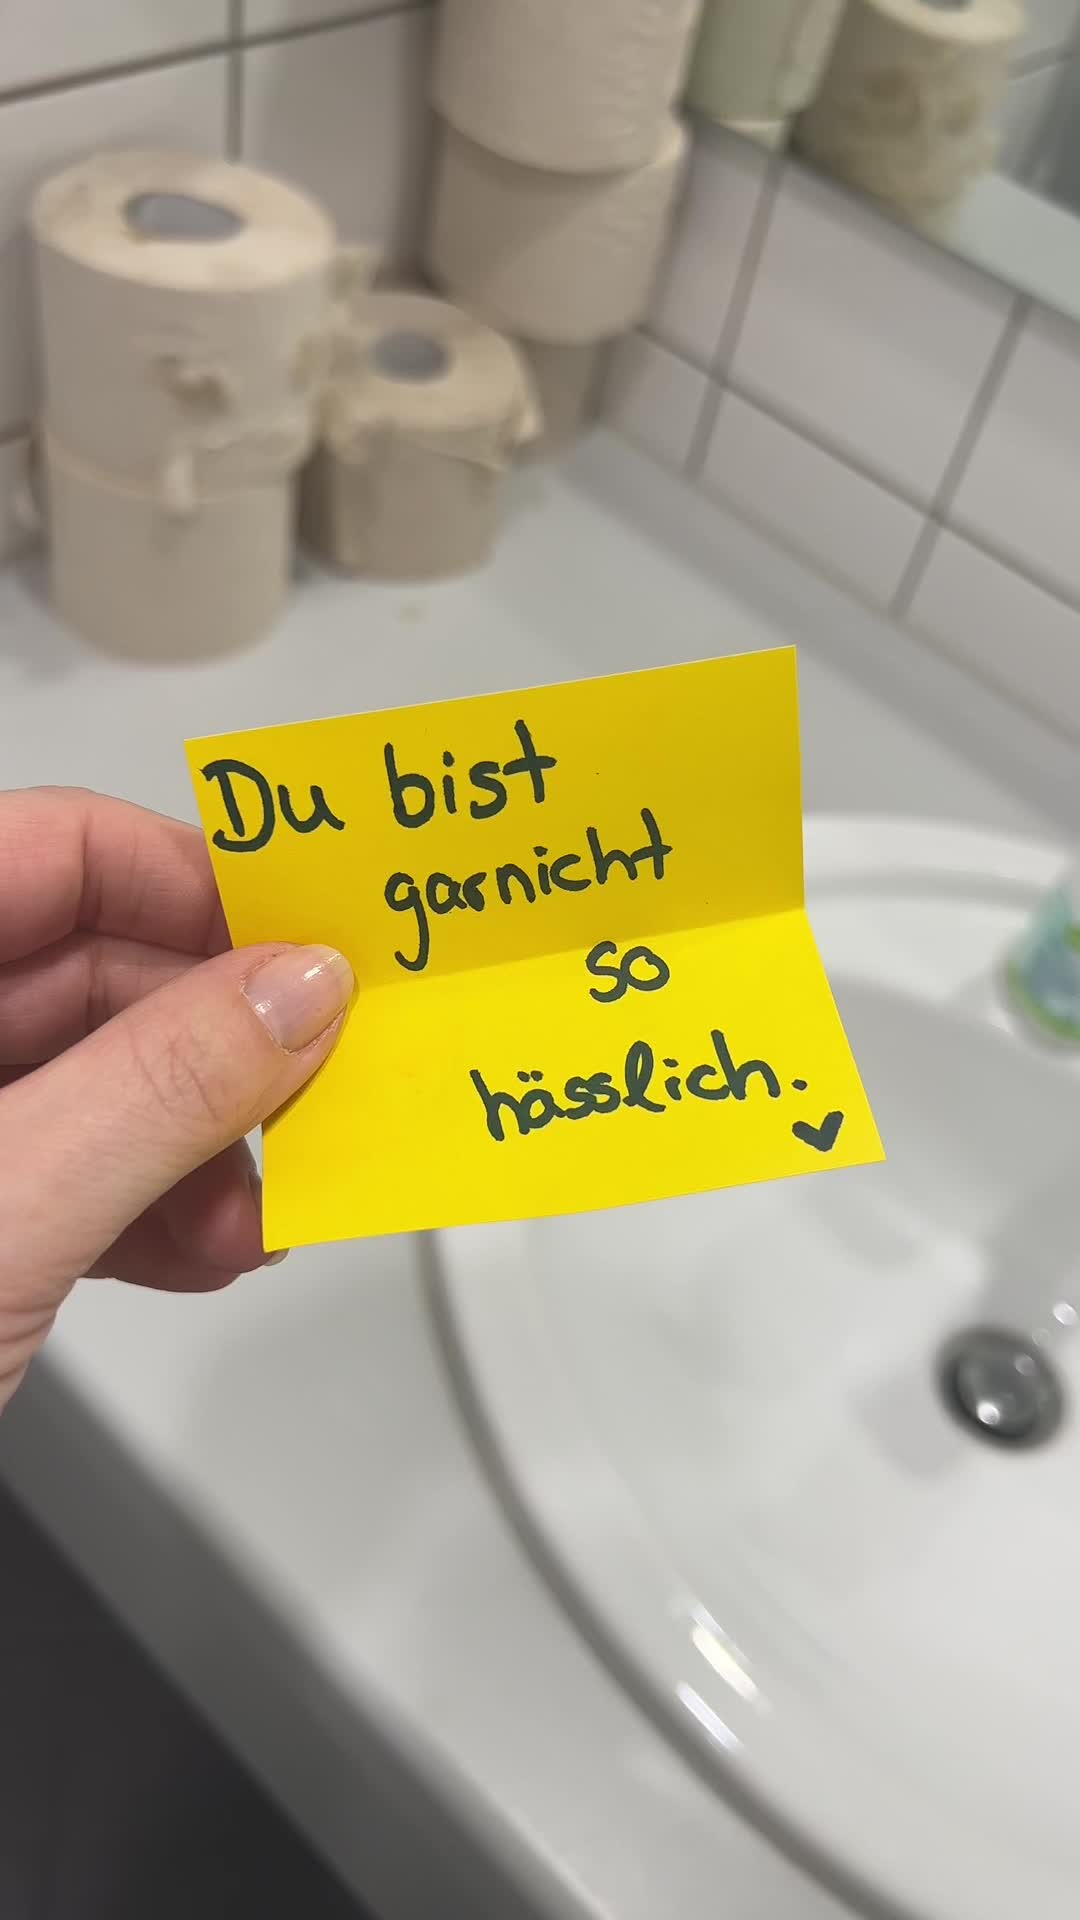 Du bist
garnicht
so
hässlich.